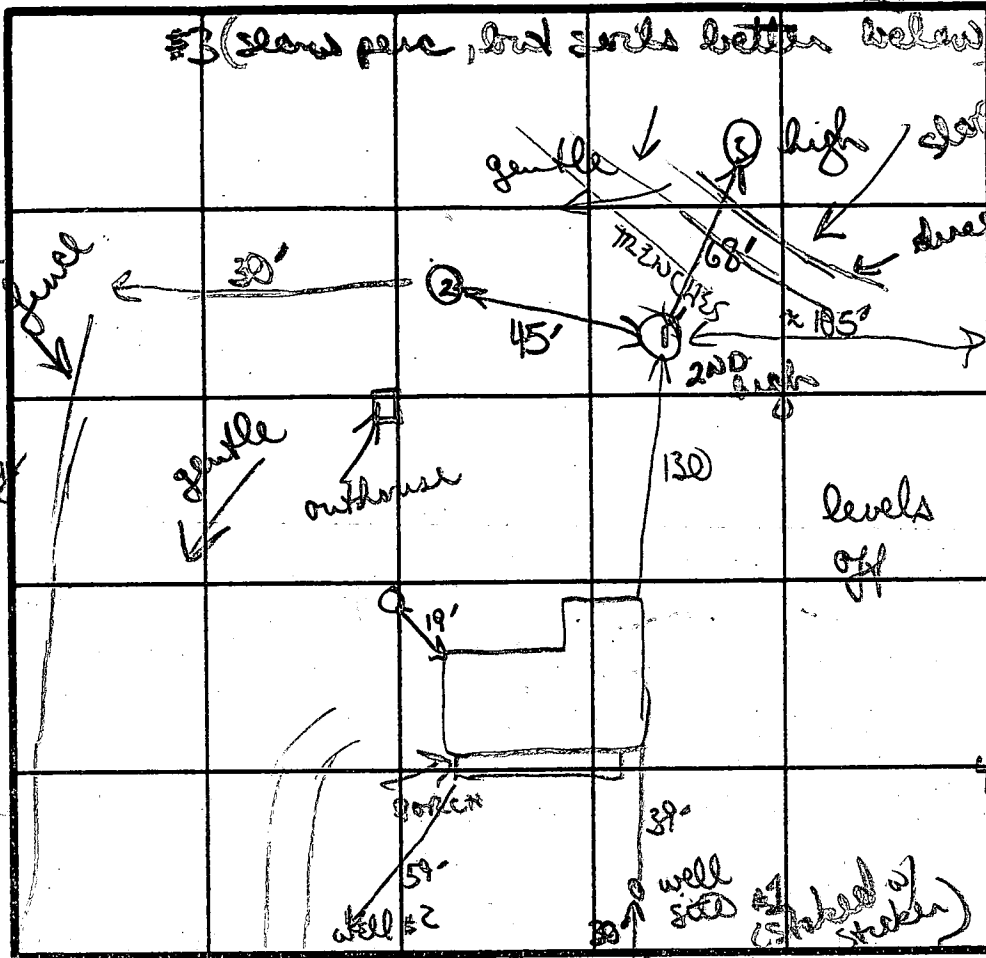 #3 (slow perc, but soils better below
3 high
gentle
fence
30'
2
TRENCHES
68'
45'
1
≈ 105'
2ND high
gentle
outhouse
130
levels
off
19'
PORCH
59'
39'
well #2
38'
well
site #1
(staked w/
stakes)